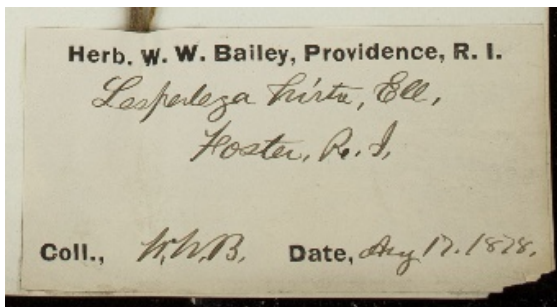 Herb. W. W. Bailey, Providence, R. I.
Lespedeza hirta, Ell,
Foster, R. I,
Coll., W.W.B. Date, Aug 17. 1878.